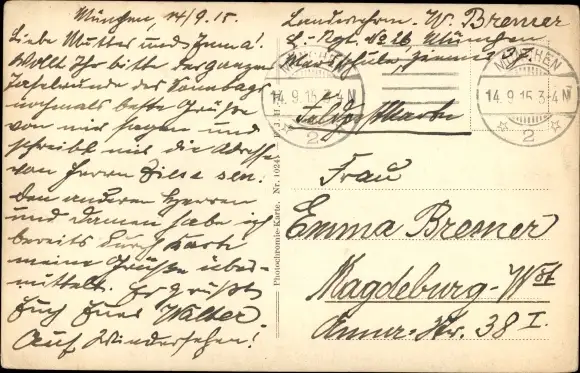 München, 14/9.15.
Liebe Mutter und Emma!
Wollt Ihr bitte der ganzen
Tafelrunde des Sonntags
nochmals beste Grüße
von mir sagen und
schreibt mir die Adresse
von Herrn Zilse sen.
Den anderen Herren
und Damen habe ich
bereits durch Karte
meine Grüße über-
mittelt. Es grüßt
Euch Euer Walter
Auf Wiedersehen!
Photochromie-Karte. Nr. 1024
Landwehrm. W. Bremer
Rgt. No 26, München
MÜNCHEN
14.9.15.3-4 N
2
MÜNCHEN
14.9.15.3-4 N
2
Feldpostkarte
Frau
Emma Bremer
Magdeburg-Wst
Str. 38 I.